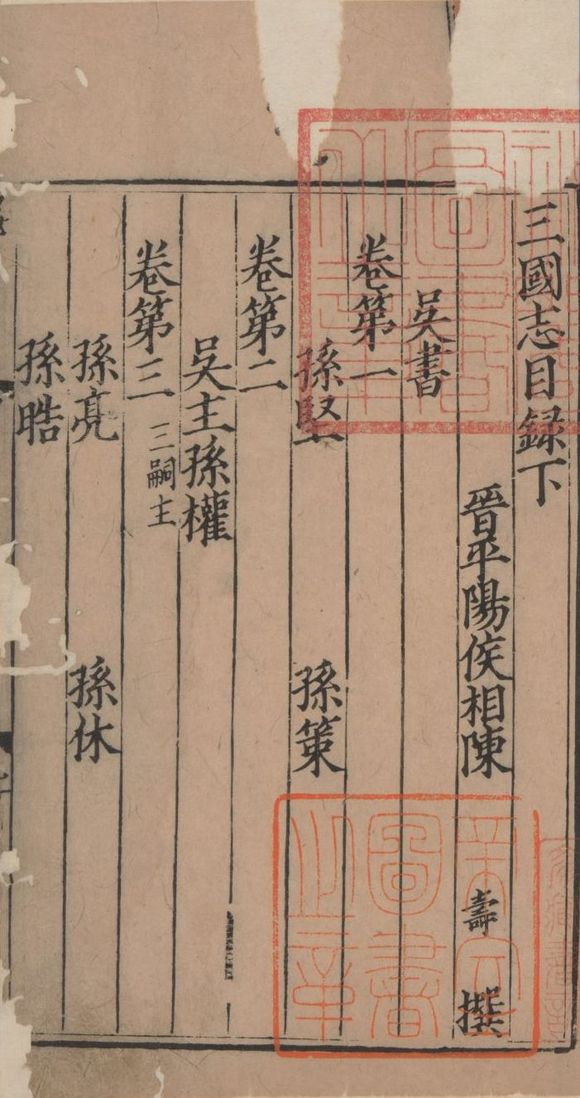 三國志目録下
晉平陽侯相陳壽撰
吳書
卷第一
孫堅 孫策
卷第二
吳主孫權
卷第三 三嗣主
孫亮 孫休
孫晧
圖書
之章